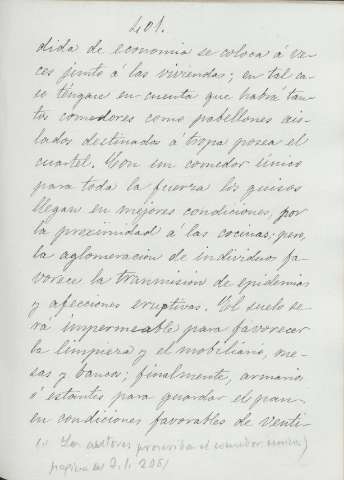 401.
dida de economia se coloca á ve-
ces junto á las viviendas; en tal ca-
so téngase en cuenta que habrá tan-
tos comedores como pabellones ais-
lados destinados á tropa posea el
cuartel. Con un comedor único
para toda la fuerza los guisos
llegan en mejores condiciones, por
la proximidad á las cocinas; pero,
la aglomeración de individuos fa-
vorece la tranmision de epidemias
y afecciones eruptivas. El suelo se-
rá impermeable para favorecer
la limpieza y el mobiliario, me-
sas y bancos; finalmente, armarios
ó estantes para guardar el pan
en condiciones favorables de venti-
(1) Los autores proscriben el comedor único